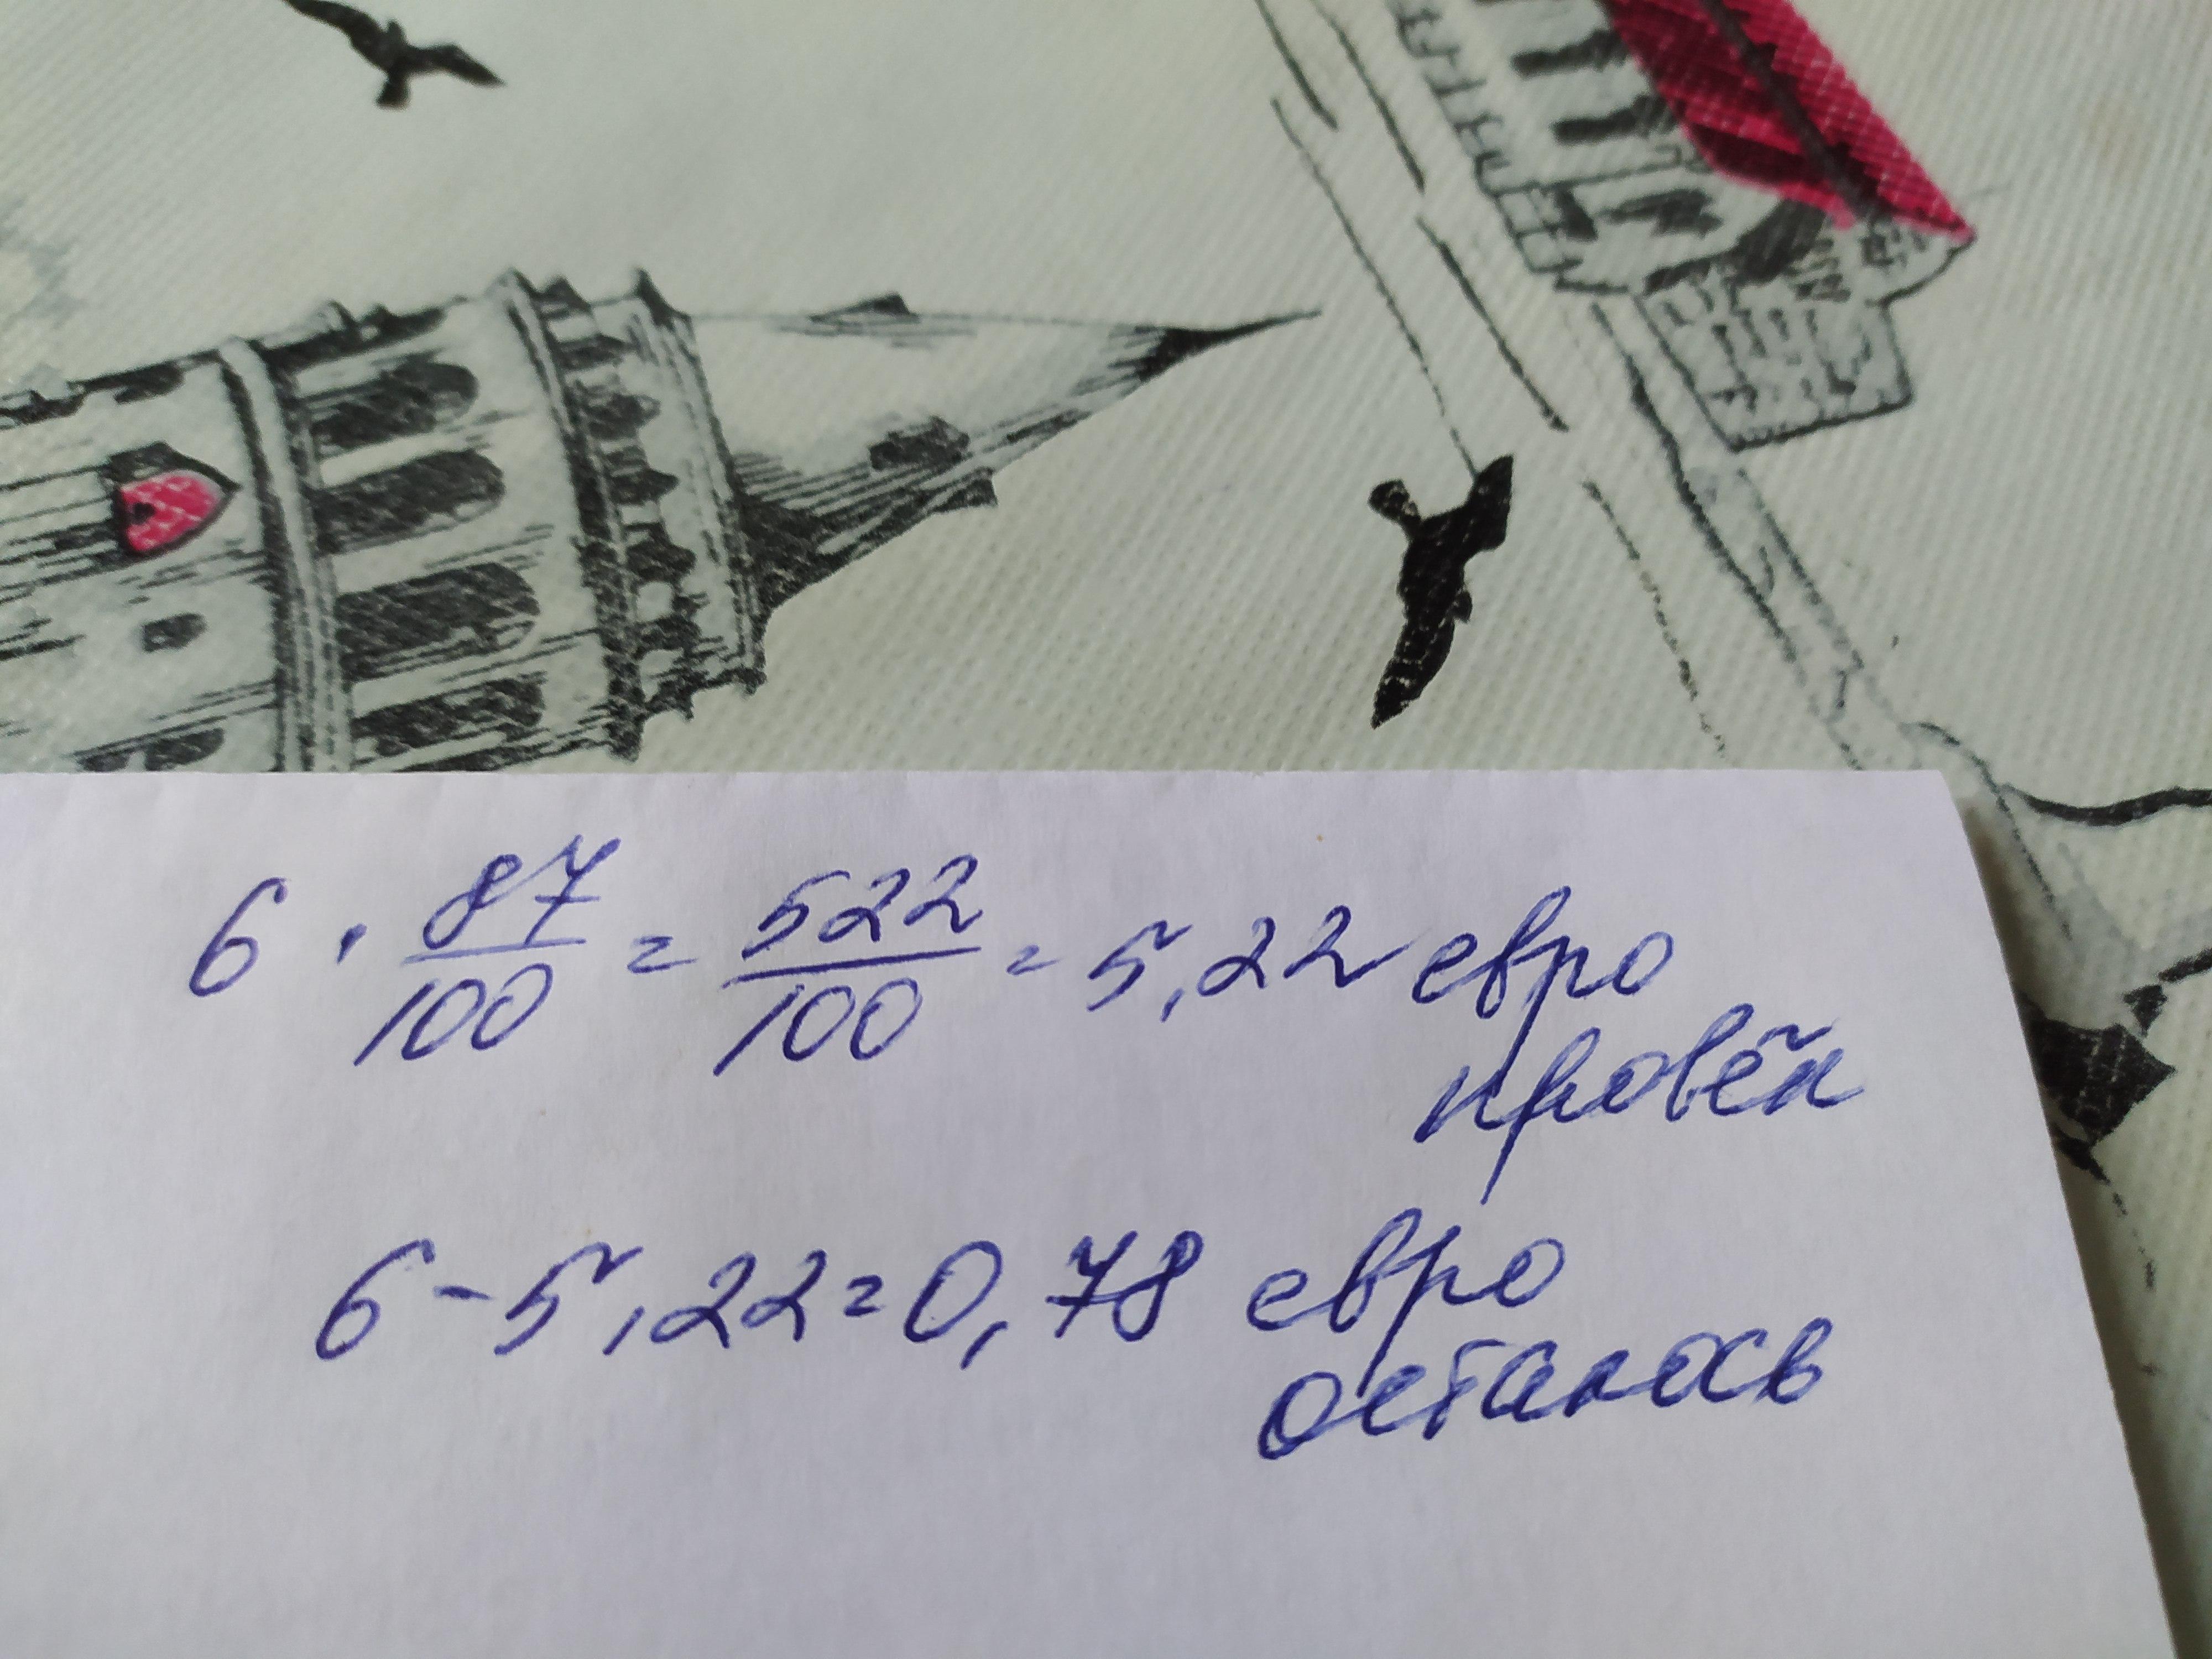 6 · 87/100 = 522/100 = 5,22 евро
провёл
6 - 5,22 = 0,78 евро
осталось